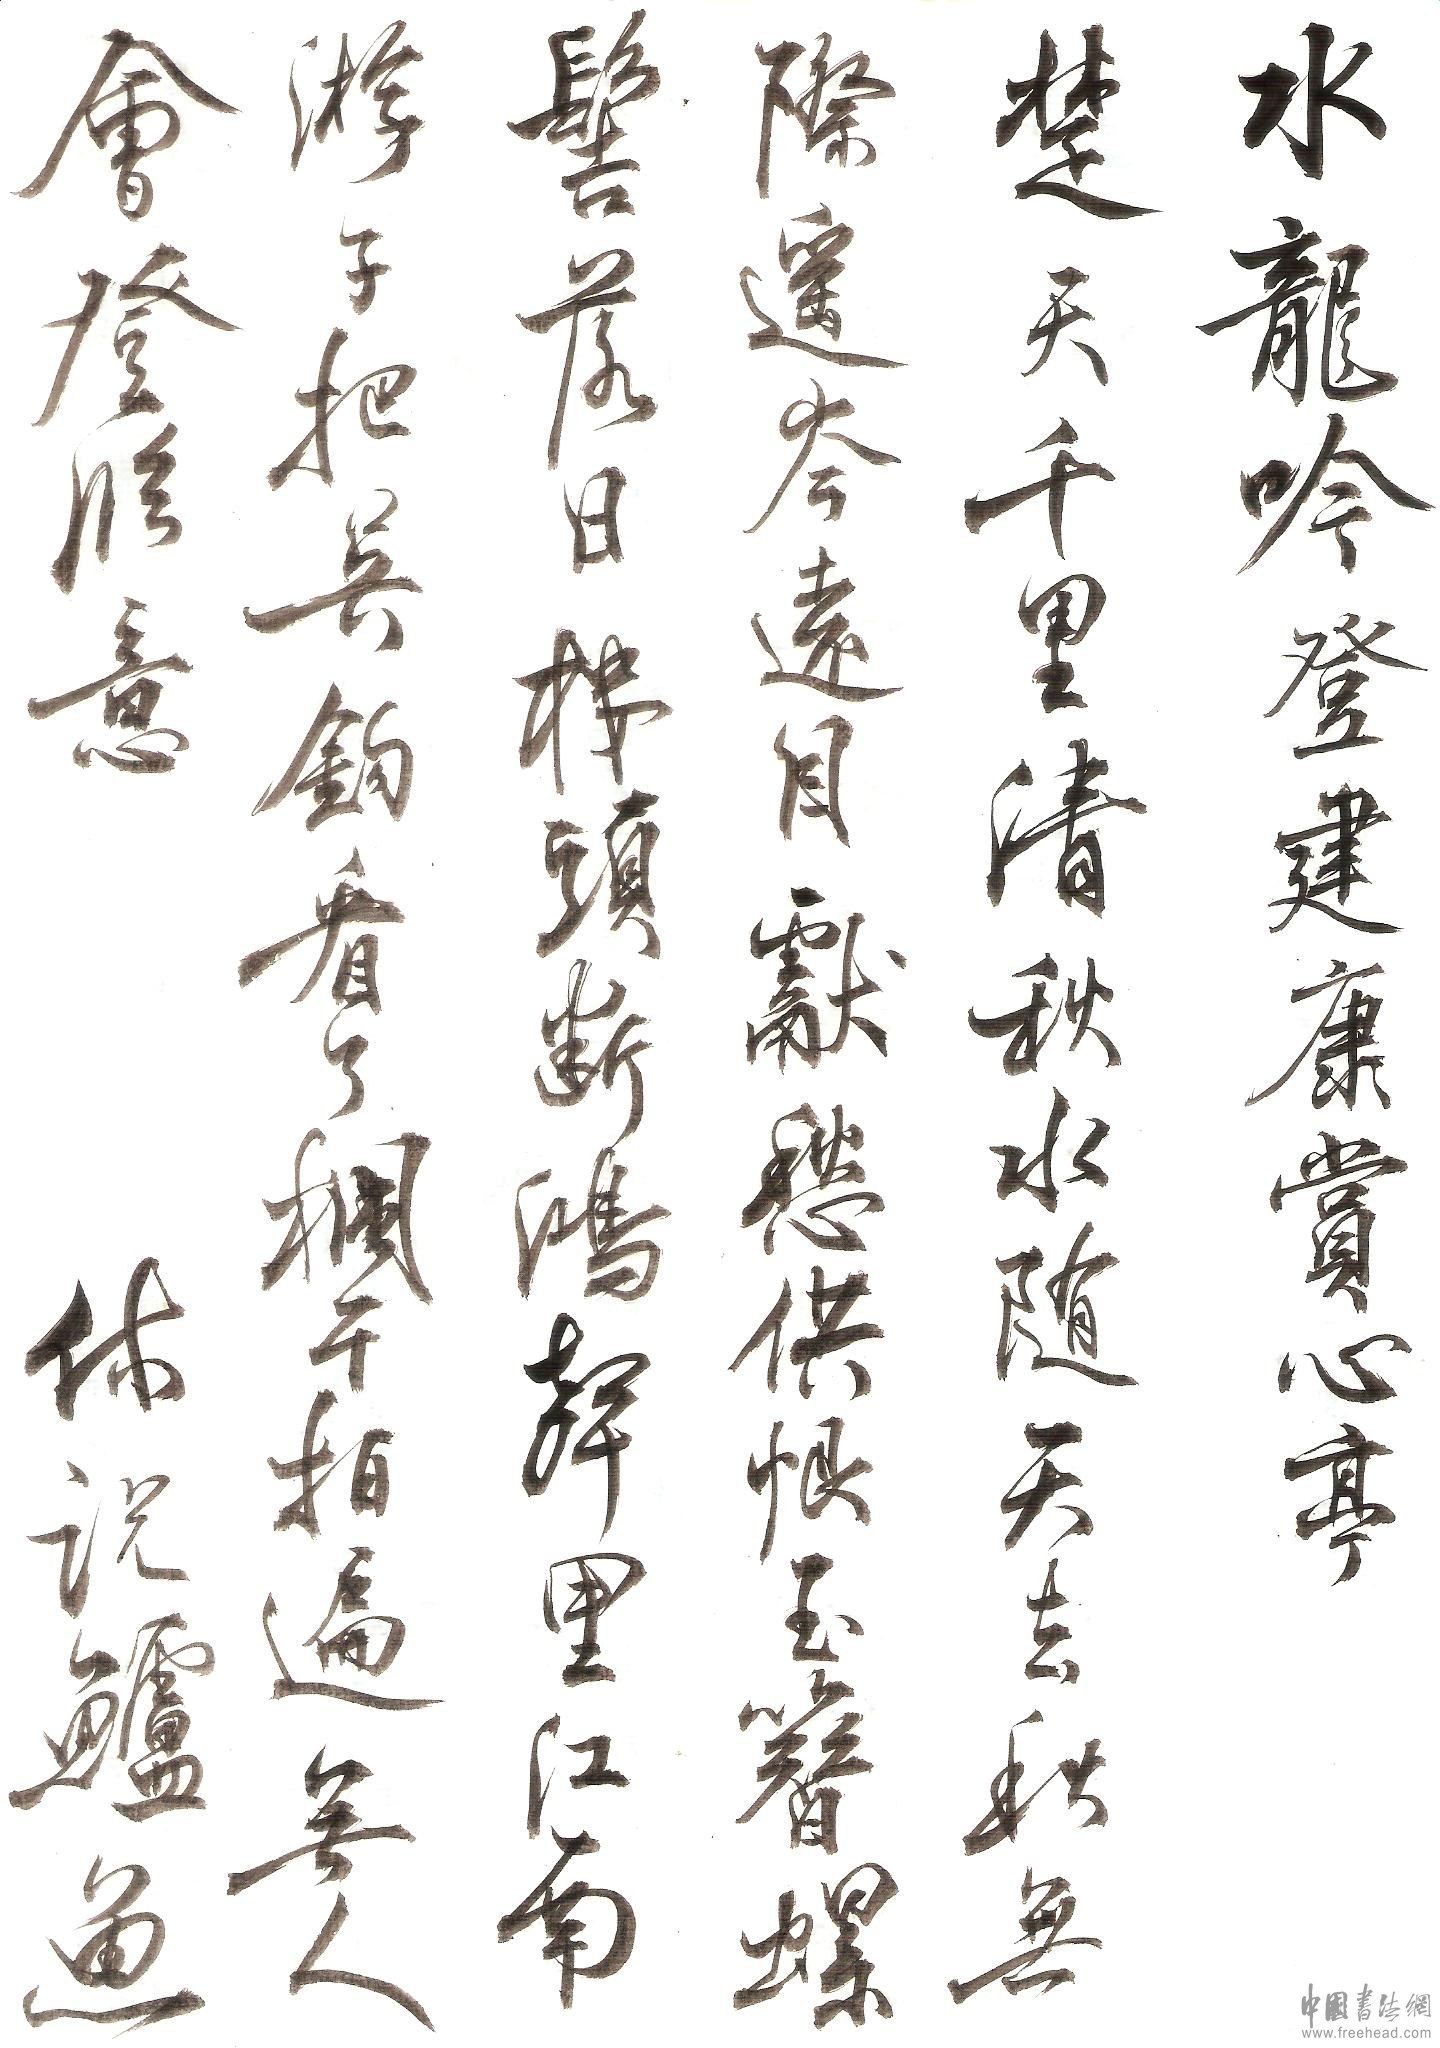 水龍吟登建康賞心亭
楚天千里清秋水随天去秋無
際遥岑遠目獻愁供恨玉簪螺
髻落日楼頭断鴻聲里江南
游子把吴鈎看了欄干拍遍無人
會登临意 休说鱸魚
中國書法網
www.freehead.com